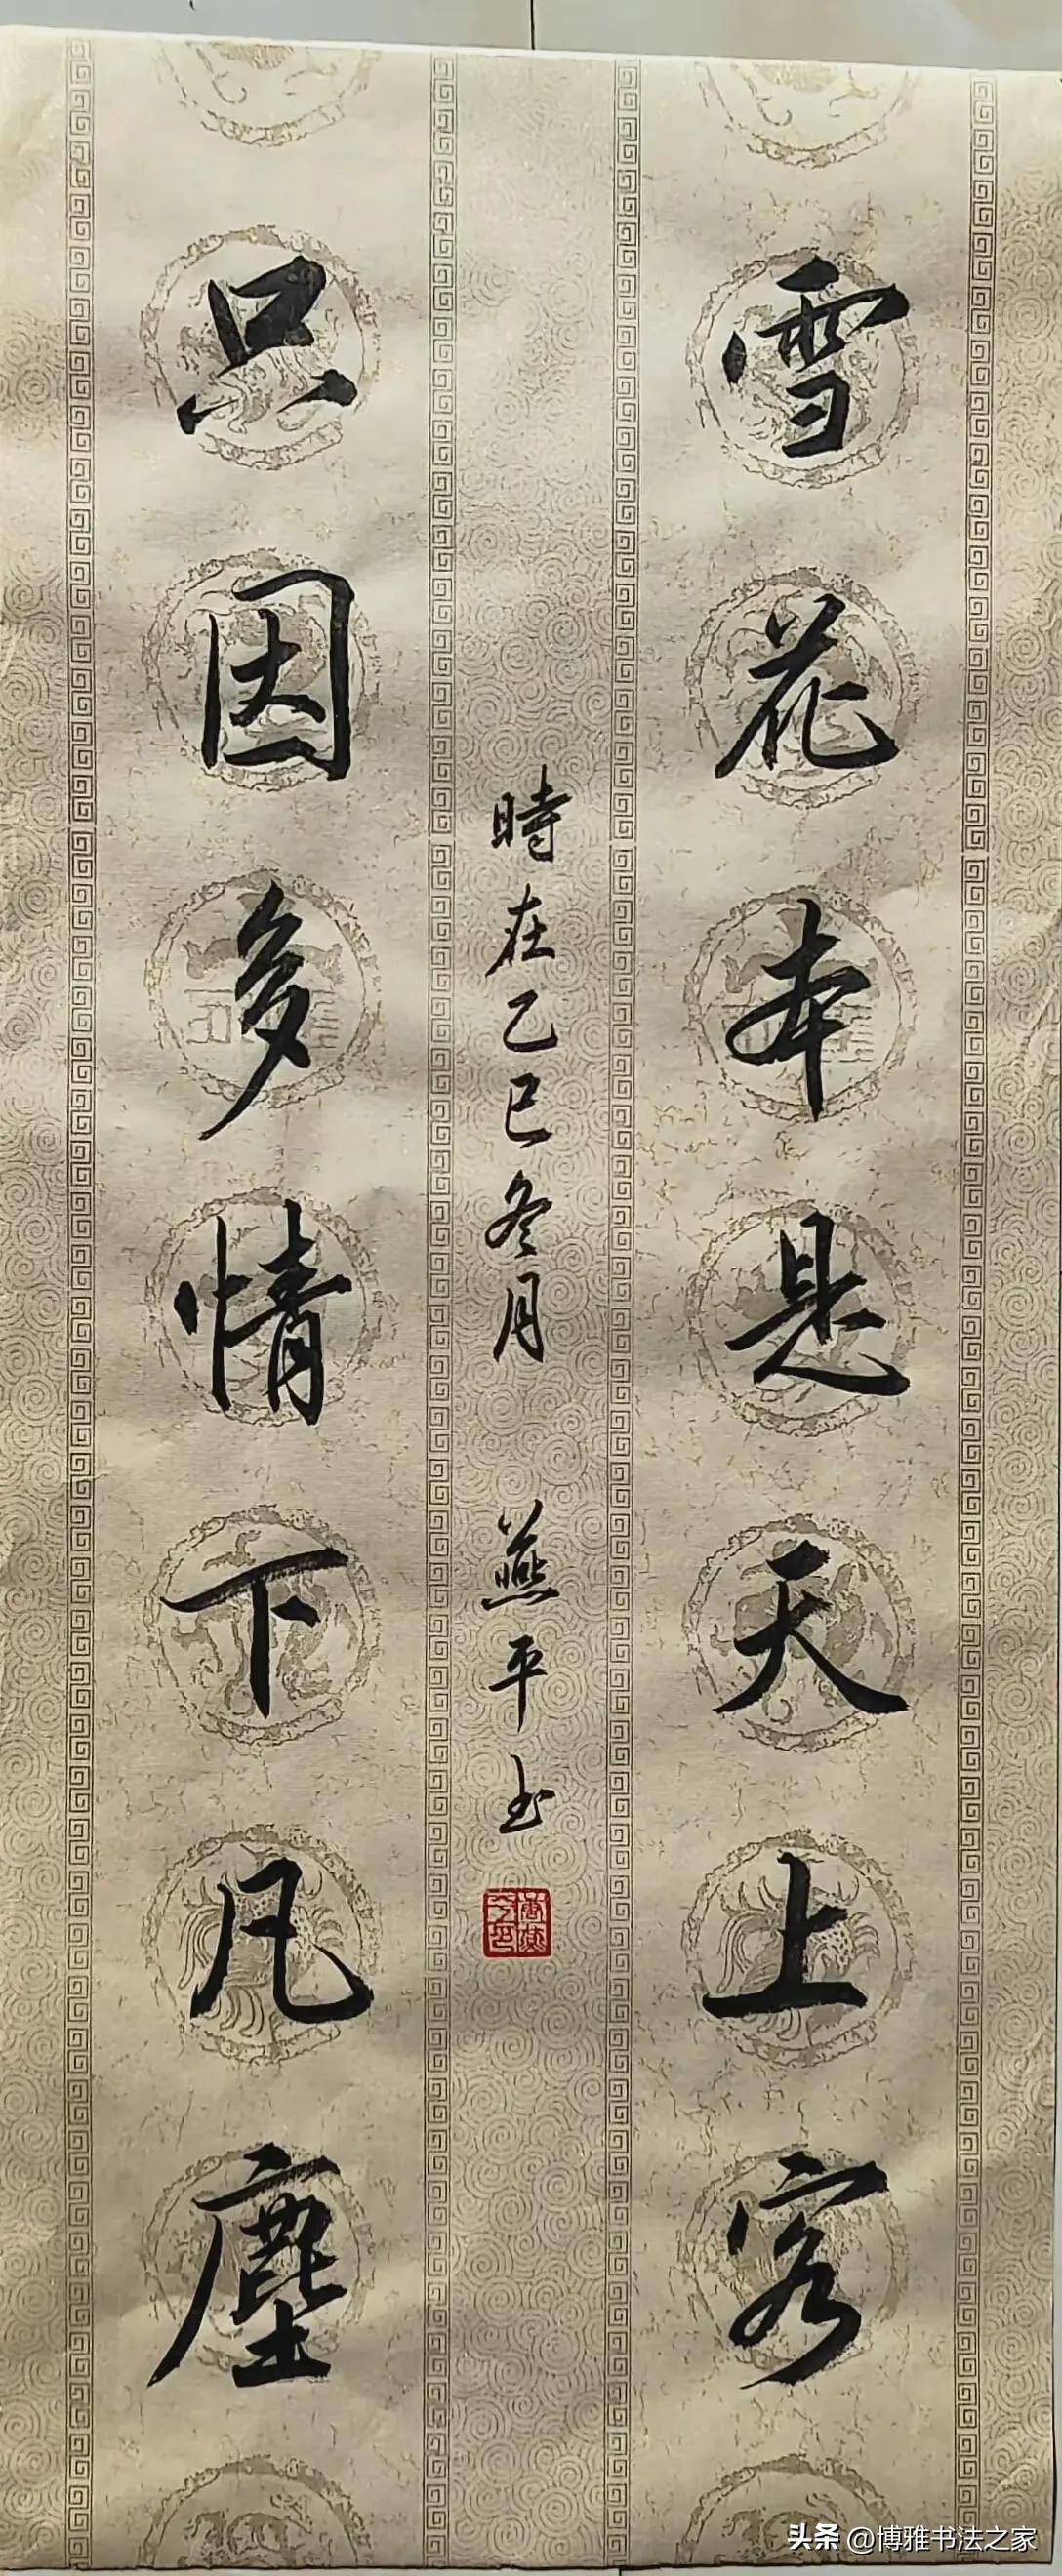 雪花本是天上客
只因多情下凡塵
時在乙巳冬月 燕平书
头条 @博雅书法之家